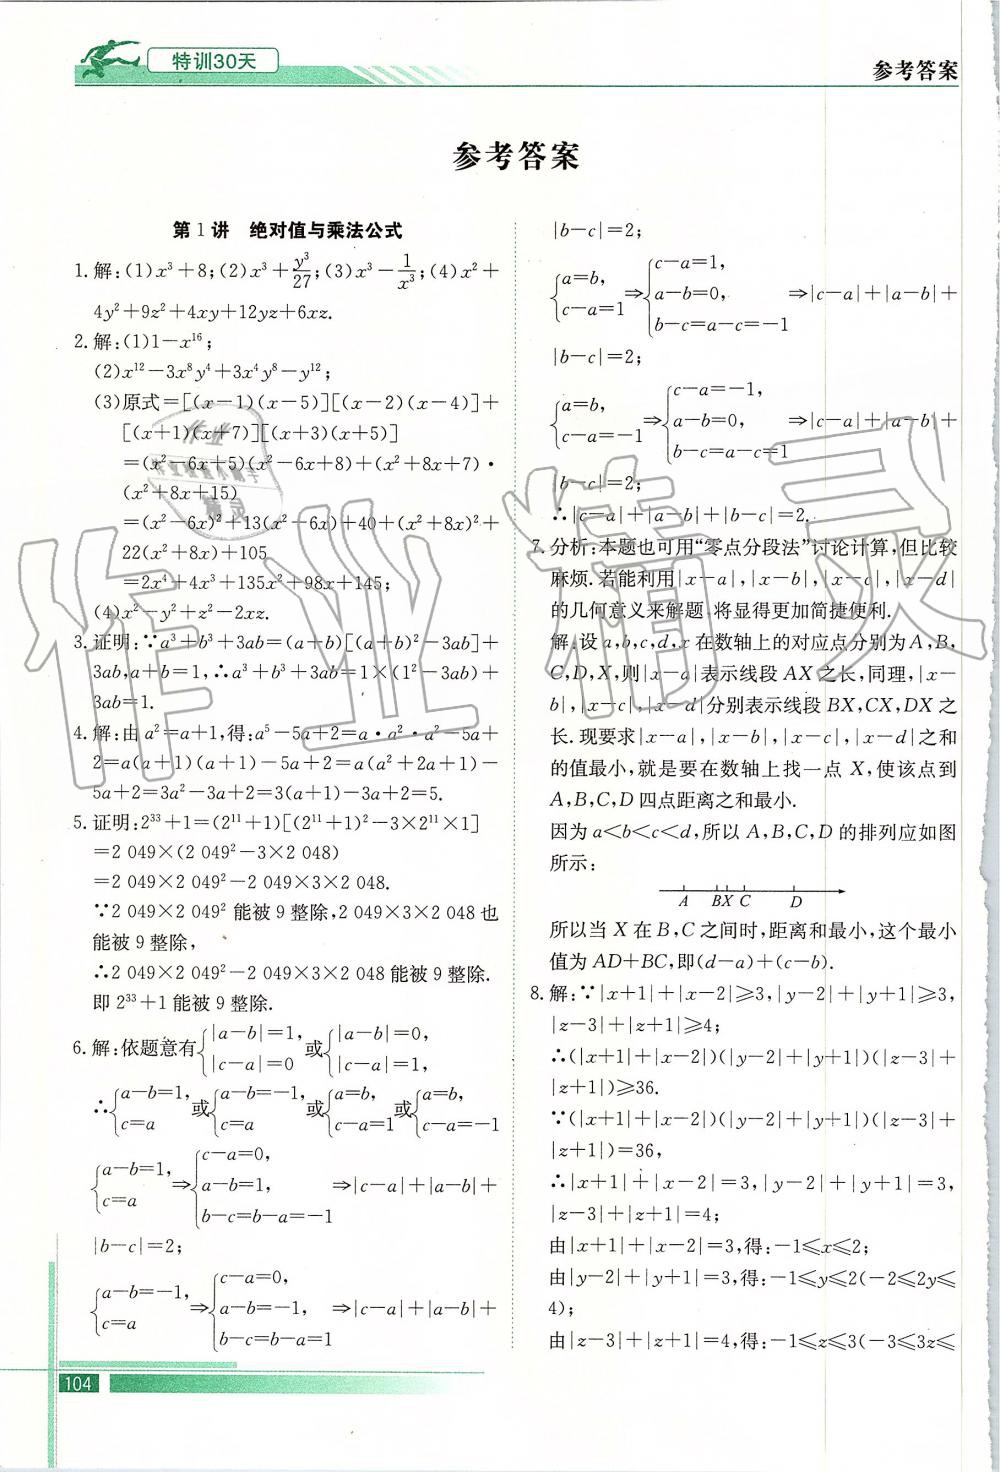 特训30天
参考答案
参考答案
第1讲 绝对值与乘法公式
1.解:(1)x³+8;(2)x³+y³/27;(3)x³-1/x³;(4)x²+
4y²+9z²+4xy+12yz+6xz.
2.解:(1)1-x¹⁶;
(2)x¹²-3x⁸y⁴+3x⁴y⁸-y¹²;
(3)原式=[(x-1)(x-5)][(x-2)(x-4)]+
[(x+1)(x+7)][(x+3)(x+5)]
=(x²-6x+5)(x²-6x+8)+(x²+8x+7)·
(x²+8x+15)
=(x²-6x)²+13(x²-6x)+40+(x²+8x)²+
22(x²+8x)+105
=2x⁴+4x³+135x²+98x+145;
(4)x²-y²+z²-2xz.
3.证明:∵a³+b³+3ab=(a+b)[(a+b)²-3ab]+
3ab,a+b=1,∴a³+b³+3ab=1×(1²-3ab)+
3ab=1.
4.解:由a²=a+1,得:a⁵-5a+2=a·a²·a²-5a+
2=a(a+1)(a+1)-5a+2=a(a²+2a+1)-
5a+2=3a²-3a+2=3(a+1)-3a+2=5.
5.证明:2³³+1=(2¹¹+1)[(2¹¹+1)²-3×2¹¹×1]
=2 049×(2 049²-3×2 048)
=2 049×2 049²-2 049×3×2 048.
∵2 049×2 049²能被9整除,2 049×3×2 048也
能被9整除,
∴2 049×2 049²-2 049×3×2 048能被9整除.
即2³³+1能被9整除.
6.解:依题意有{|a-b|=1, |c-a|=0 或{|a-b|=0, |c-a|=1,
∴{a-b=1, c=a 或{a-b=-1, c=a 或{a=b, c-a=1 或{a=b, c-a=-1
{a-b=1, c=a ⇒{c-a=0, a-b=1, b-c=b-a=-1 ⇒|c-a|+|a-b|+
|b-c|=2;
{a-b=-1, c=a ⇒{c-a=0, a-b=-1, b-c=b-a=1 ⇒|c-a|+|a-b|+
|b-c|=2;
{a=b, c-a=1 ⇒{c-a=1, a-b=0, b-c=a-c=-1 ⇒|c-a|+|a-b|+
|b-c|=2;
{a=b, c-a=-1 ⇒{c-a=-1, a-b=0, b-c=a-c=1 ⇒|c-a|+|a-b|+
|b-c|=2;
∴|c-a|+|a-b|+|b-c|=2.
7.分析:本题也可用“零点分段法”讨论计算,但比较
麻烦.若能利用|x-a|,|x-b|,|x-c|,|x-d|
的几何意义来解题,将显得更加简捷便利.
解:设a,b,c,d,x在数轴上的对应点分别为A,B,
C,D,X,则|x-a|表示线段AX之长,同理,|x-
b|,|x-c|,|x-d|分别表示线段BX,CX,DX之
长.现要求|x-a|,|x-b|,|x-c|,|x-d|之和
的值最小,就是要在数轴上找一点X,使该点到
A,B,C,D四点距离之和最小.
因为a<b<c<d,所以A,B,C,D的排列应如图
所示:
A BX C D
所以当X在B,C之间时,距离和最小,这个最小
值为AD+BC,即(d-a)+(c-b).
8.解:∵|x+1|+|x-2|≥3,|y-2|+|y+1|≥3,
|z-3|+|z+1|≥4;
∴(|x+1|+|x-2|)(|y-2|+|y+1|)(|z-3|+
|z+1|)≥36.
∵(|x+1|+|x-2|)(|y-2|+|y+1|)(|z-3|+
|z+1|)=36,
∴|x+1|+|x-2|=3,|y-2|+|y+1|=3,
|z-3|+|z+1|=4;
由|x+1|+|x-2|=3,得:-1≤x≤2;
由|y-2|+|y+1|=3,得:-1≤y≤2(-2≤2y≤
4);
由|z-3|+|z+1|=4,得:-1≤z≤3(-3≤3z≤
104
作业精灵